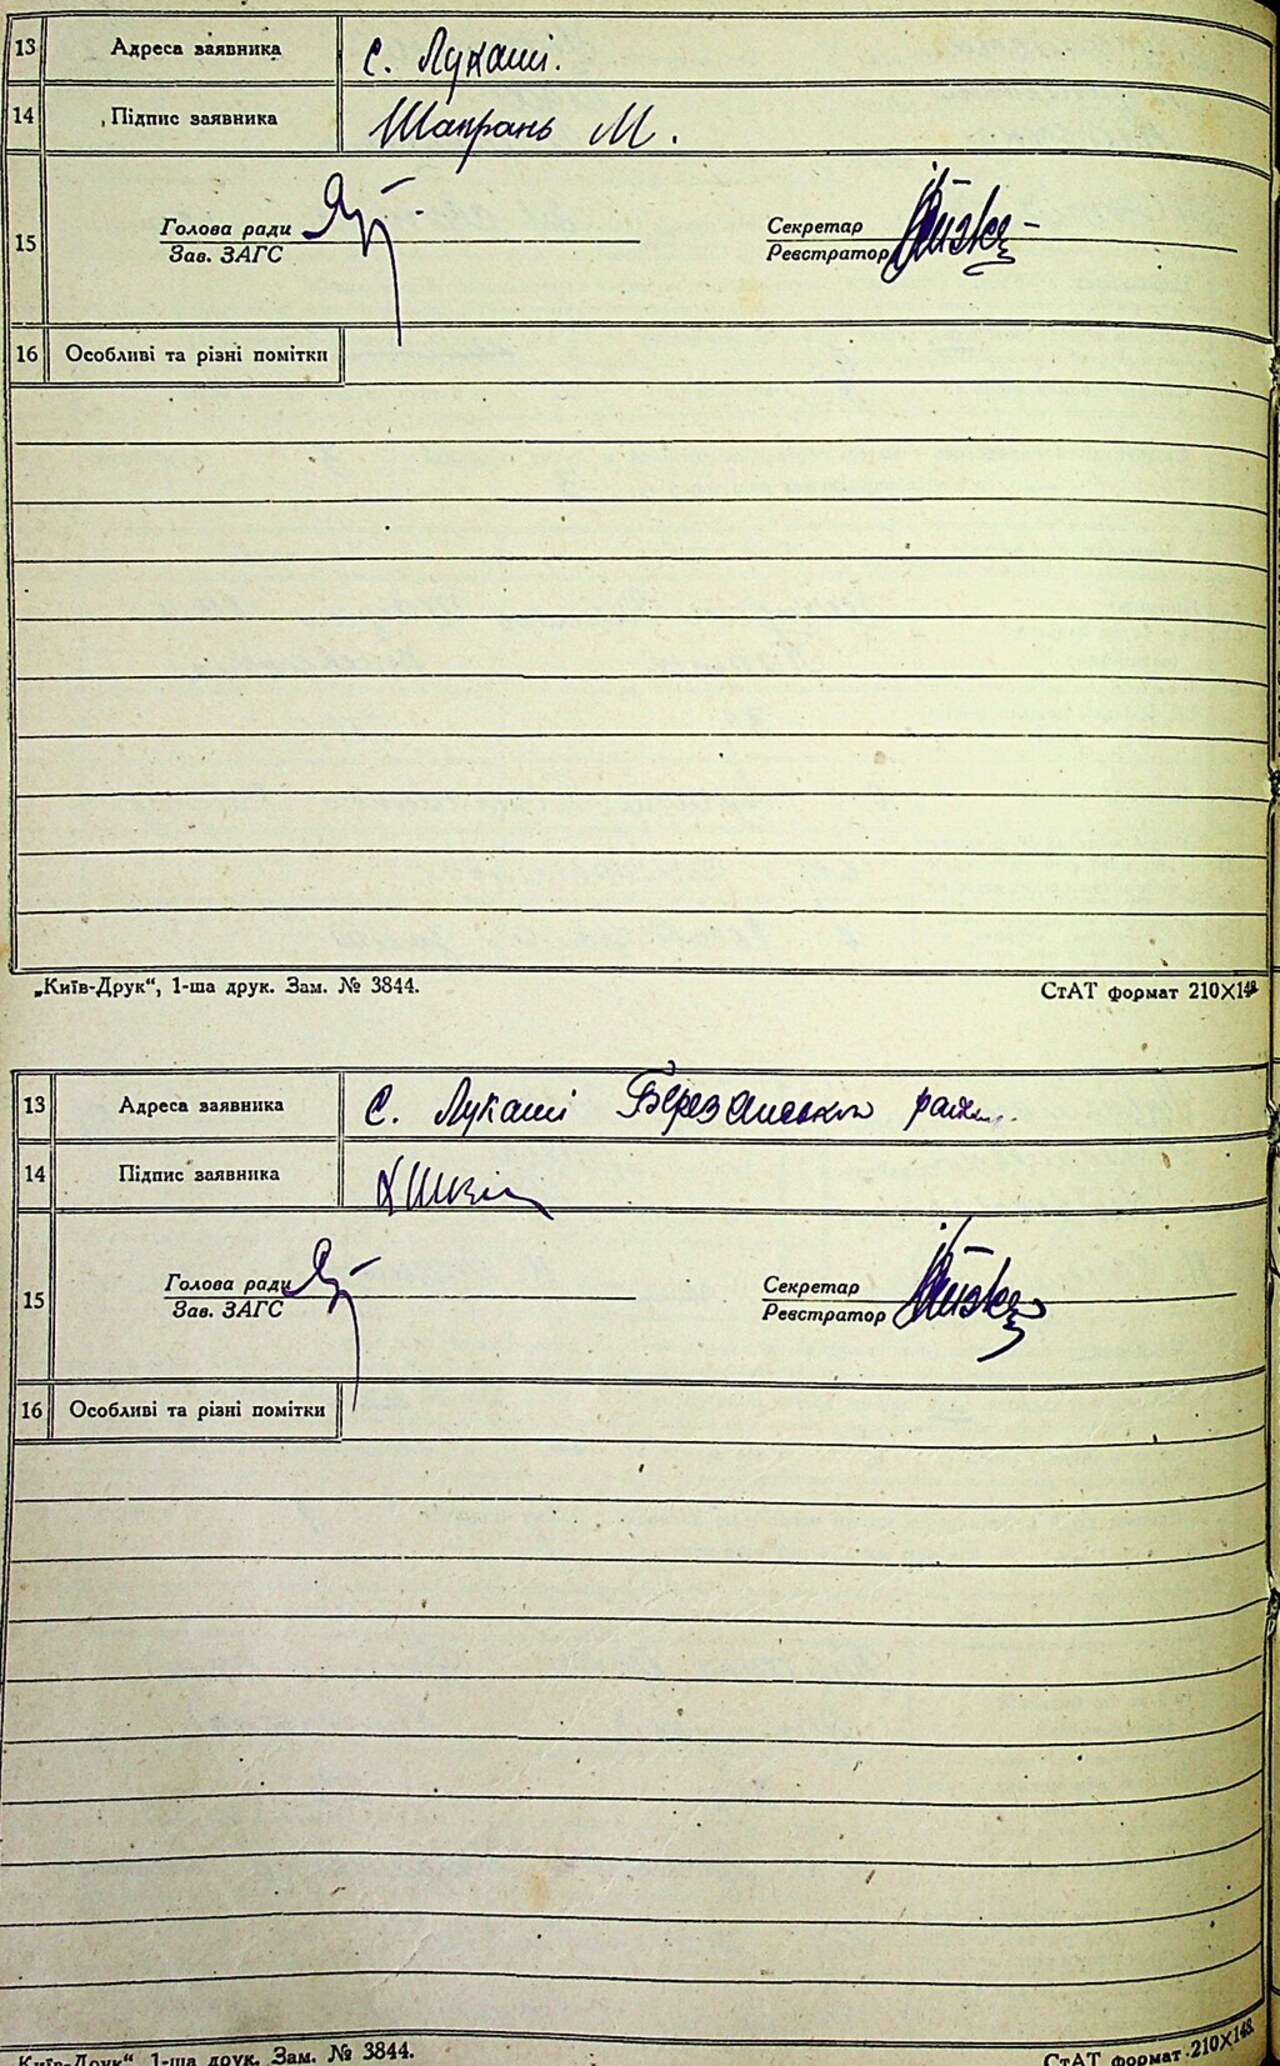 13 Адреса заявника с. Лукаші.
14 Підпис заявника Шапрань М.
15 Голова ради Секретар
Зав. ЗАГС Реєстратор
16 Особливі та різні помітки
„Київ-Друк“, 1-ша друк. Зам. № 3844. СтАТ формат 210×148
13 Адреса заявника С. Лукаші Березанського
14 Підпис заявника
15 Голова ради Секретар
Зав. ЗАГС Реєстратор
16 Особливі та різні помітки
Київ-Друк“, 1-ша друк. Зам. № 3844. СтАТ формат 210×148